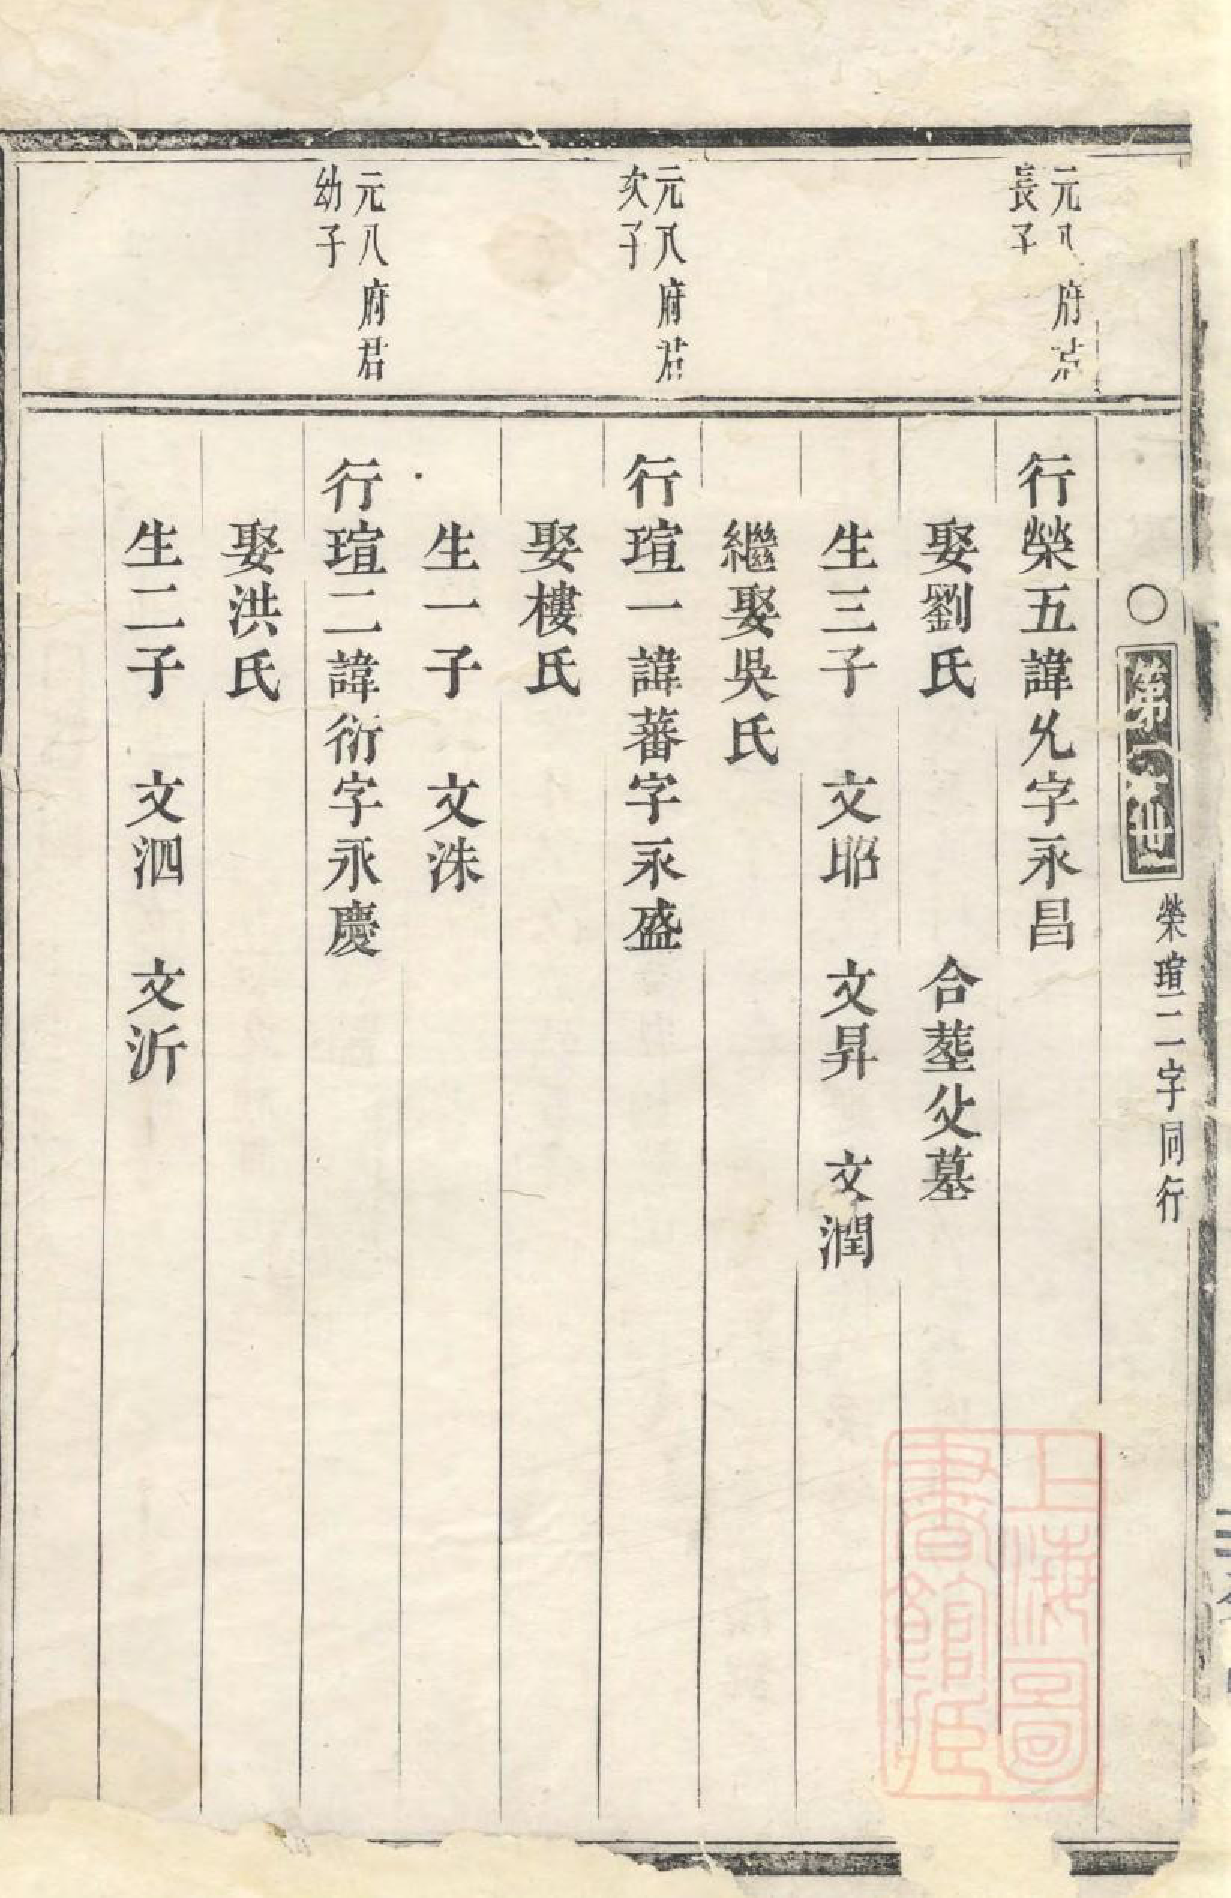 ○第世
榮瑄二字同行
元八府君
長子
行榮五諱允字永昌
娶劉氏 合塟父墓
生三子 文昭 文昇 文潤
繼娶吳氏
元八府君
次子
行瑄一諱蕃字永盛
娶樓氏
生一子 文洙
元八府君
幼子
行瑄二諱衍字永慶
娶洪氏
生二子 文泗 文沂
上海圖
書館藏